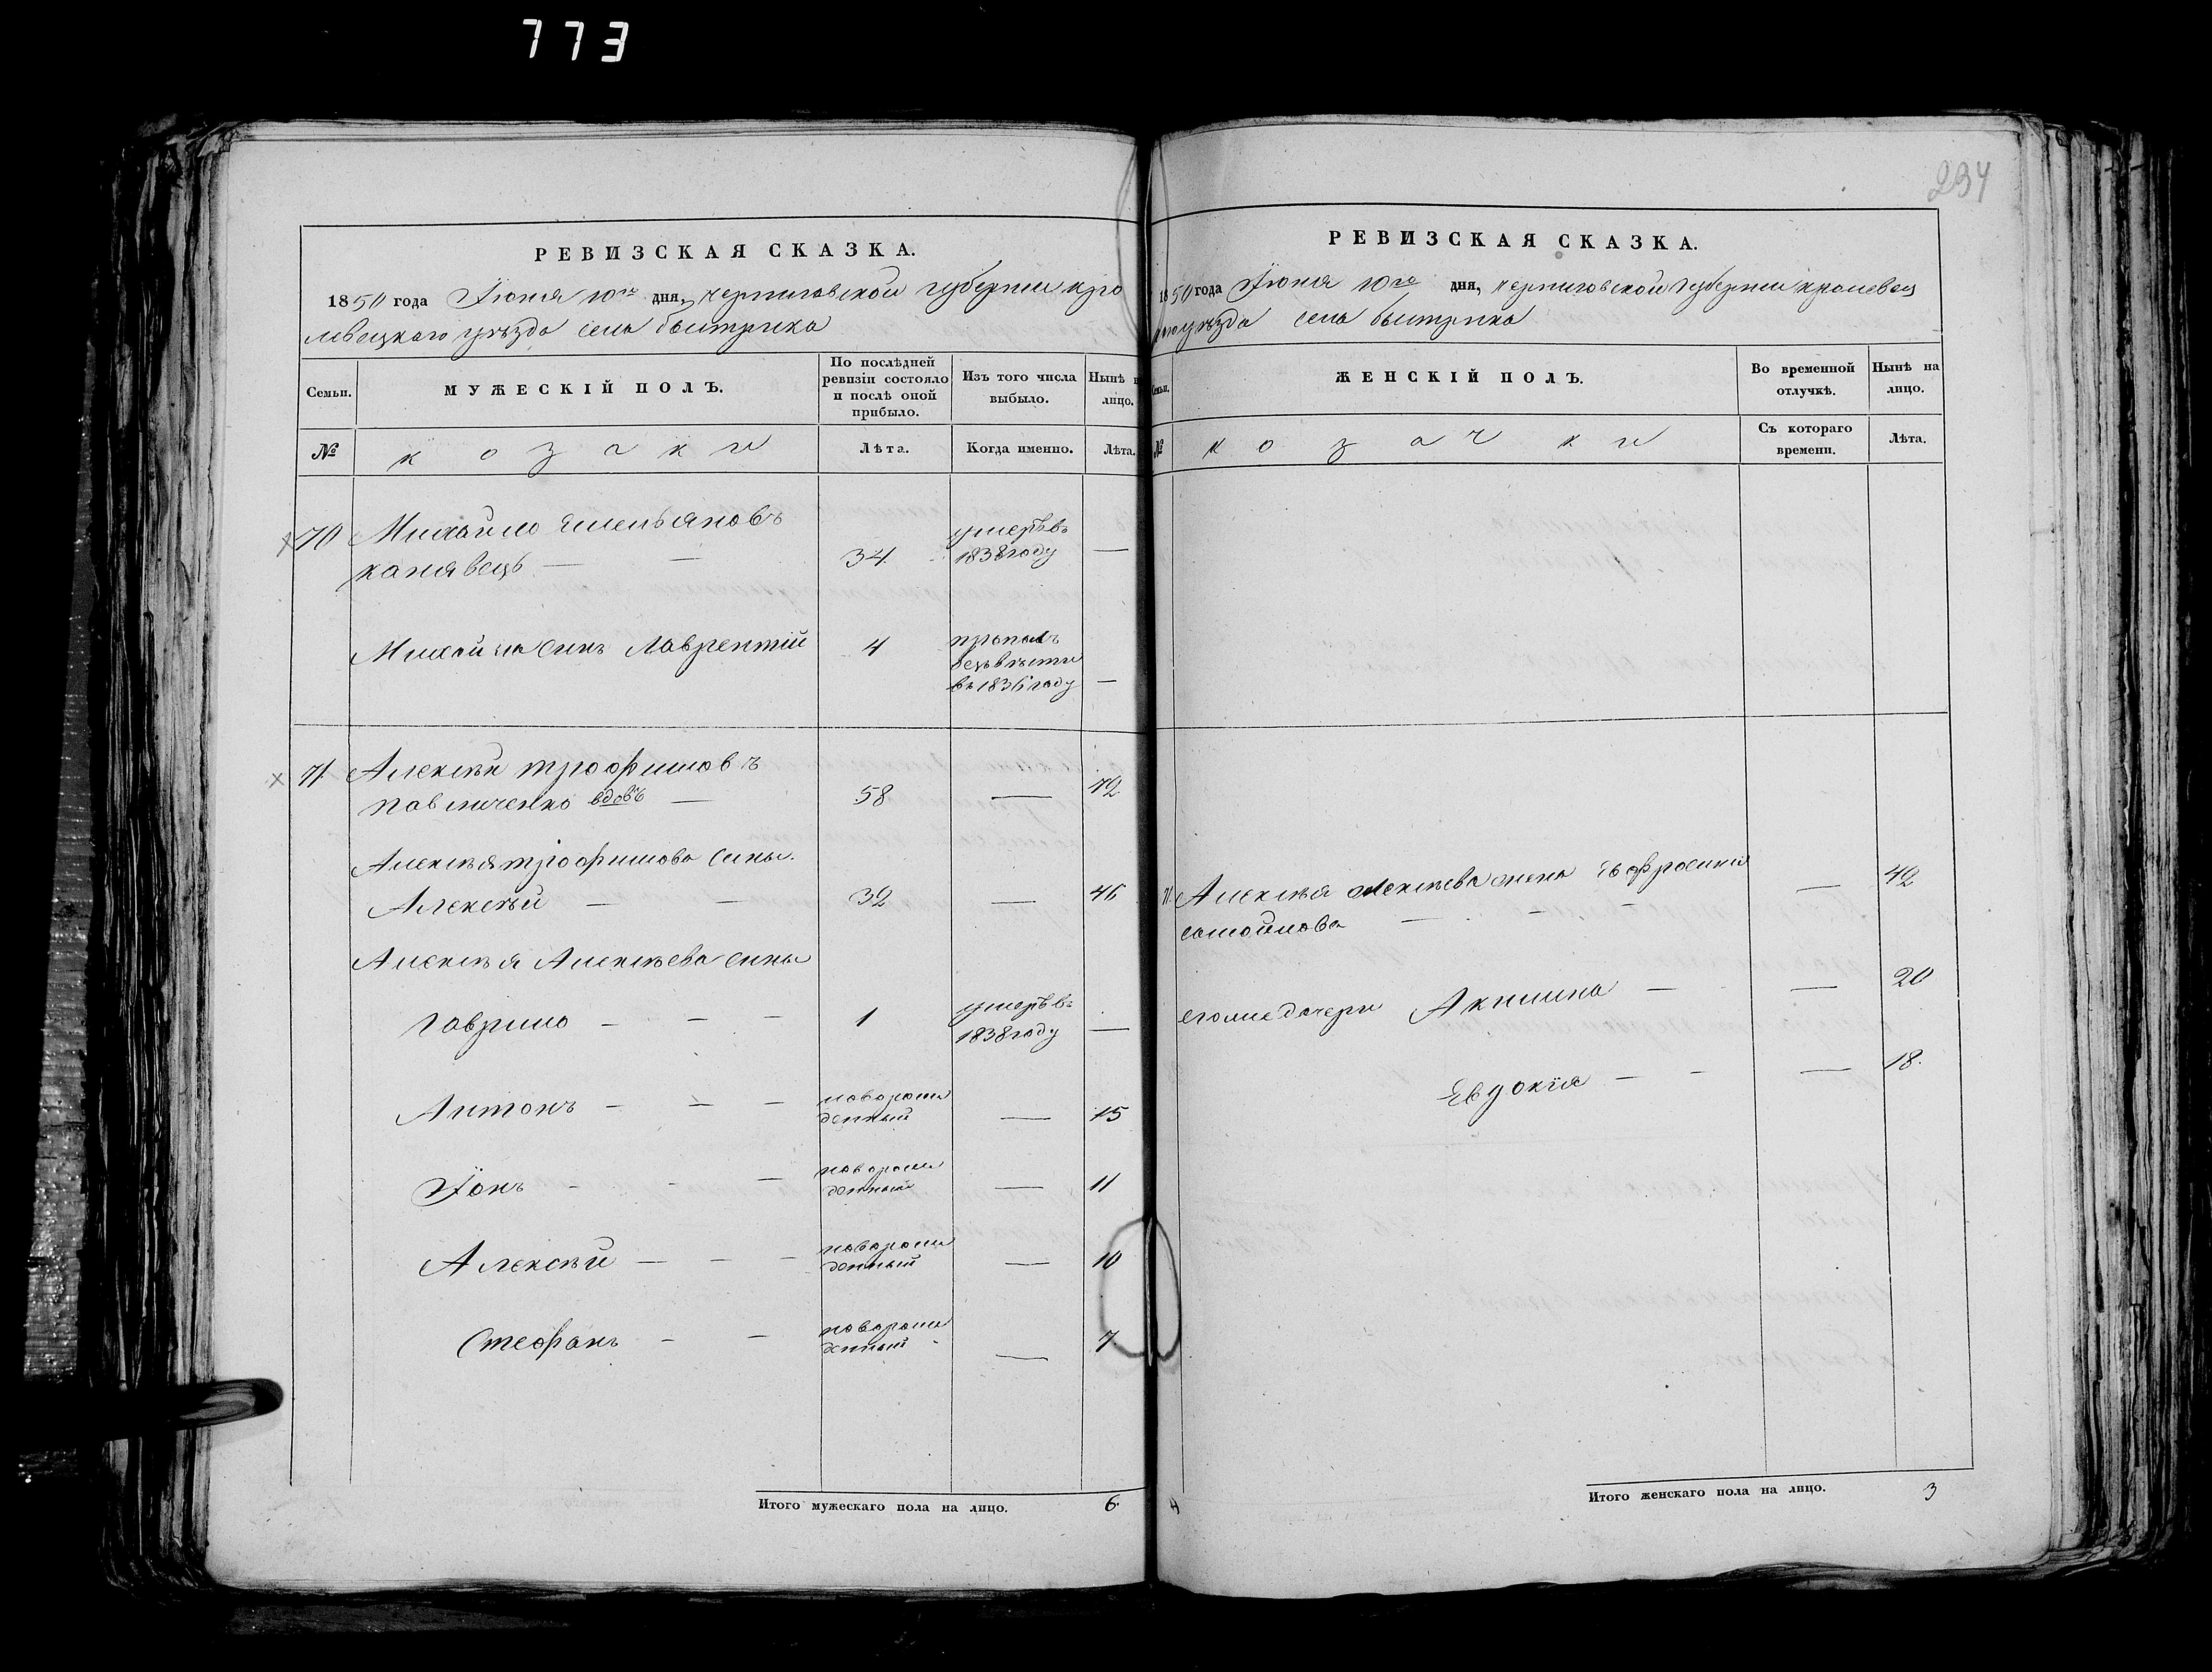 773
РЕВИЗСКАЯ СКАЗКА.
1850 года Іюня 10го дня, черниговской губерніи кро
левецкаго уѣзда села быстрика
Семьи.
МУЖЕСКІЙ ПОЛЪ.
По послѣдней ревизіи состояло и послѣ оной прибыло.
Изъ того числа выбыло.
Нынѣ лицо.
№
козаки
Лѣта.
Когда именно.
Лѣта.
70 Михайло Емельяновъ
канявецъ — — 34. умеръ въ 1838 году —
Михайла сынъ Лаврентій 4 пропалъ безъ вѣсти въ 1836 году —
71. Алексѣй трофимовъ
павличенко вдовъ — 58 — 72.
Алексѣя трофимова сынъ.
Алексѣй — — 32 — 46
Алексѣя Алексѣева сыны
Гаврило — — — 1 умеръ въ 1838 году —
Антонъ — — — новорожденный — 15
Іонъ — — — новорожденный — 11
Алексѣй — — — новорожденный — 10
Стефанъ — — новорожденный — 7.
Итого мужескаго пола на лицо. 6.
234
РЕВИЗСКАЯ СКАЗКА.
1850 года Іюня 10го дня, черниговской губерніи кролевец
каго уѣзда села быстрика
Семьи.
ЖЕНСКІЙ ПОЛЪ.
Во временной отлучкѣ.
Нынѣ на лицо.
№
козачки
Съ котораго времени.
Лѣта.
71. Алексѣя Алексѣева жена Евфросинія
самойлова — — — — 42
его же дочери Акилина — — 20
Евдокія — — — 18.
Итого женскаго пола на лицо. 3